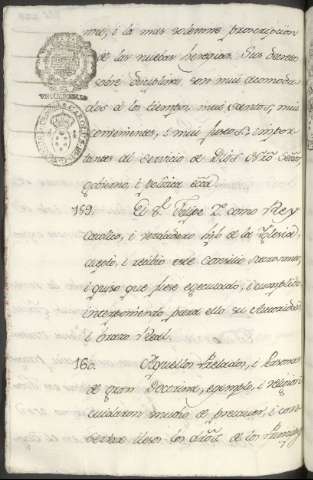 me, i la mas solemne proscripcion
de las nuevas heregias. Sus decretos
sobre disciplina, son mui acomoda-
dos a los tiempos, mui santos, mui
convenientes, i mui justos, è impor-
tantes al servicio de Dios Ntro Señor,
gobierno, i politica
159. El Sr. Felipe 2.º como Rey
Catolico, i verdadero hijo de la Iglesia,
acepto, i recibio este Concilio
i quiso que fuese egecutado, i cumplido
enteramente, para ello su Autoridad
i brazo Real.
160. Aquellos Prelados, i Personas
de gran Doctrina, egemplo, i religion
cuidaron mucho de precaver, i con-
servar ilesos los de los